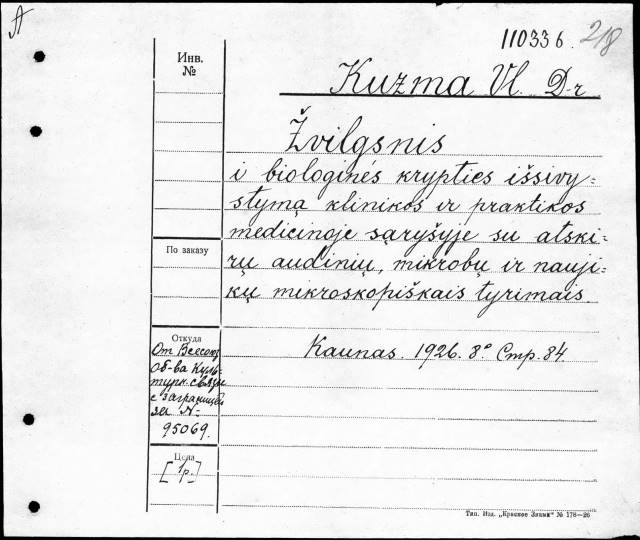 A
110336. 218
Инв.
№
Kuzma Vl. D-r
Žvilgsnis
i biologinės krypties išsivy-
stymą klinikos ir praktikos
medicinoje sąryšyje su atski-
rų audinių, mikrobų ir nauji-
kų mikroskopiškais tyrimais.
По заказу
Kaunas. 1926. 8° Стр. 84
Откуда
От Всесоюз
об-ва Куль-
турн. связи
с заграницей
за №
95069.
Цена
[1р.]
Тип. Изд. „Красное Знамя" № 178—26